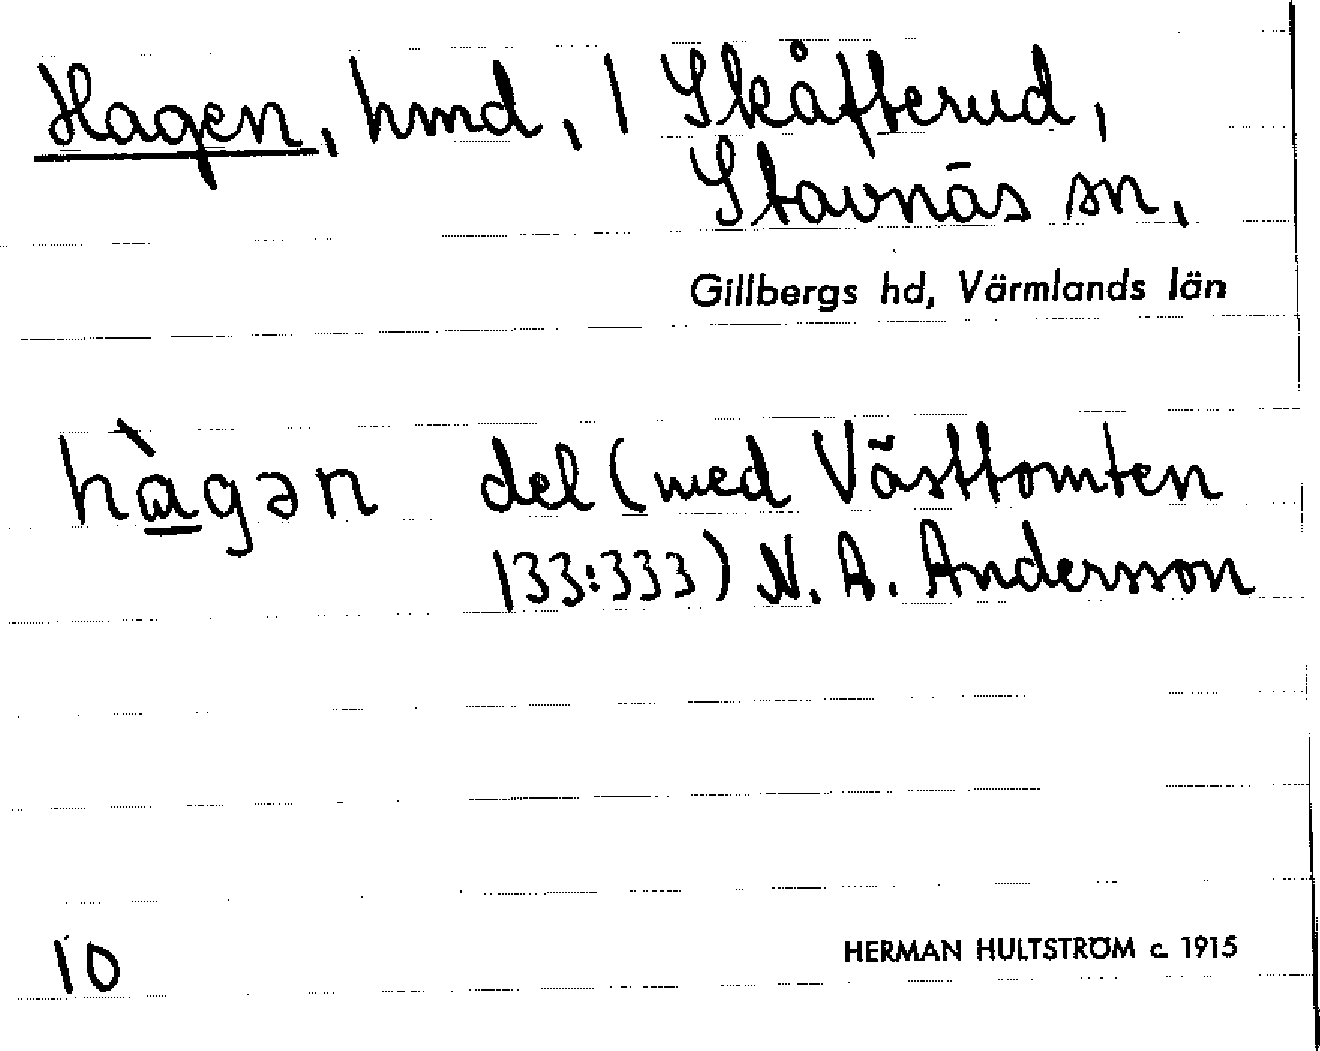 Hagen, hmd, 1 Skåfterud,
Stavnäs sn,
Gillbergs hd, Värmlands län
hàgən del (med Västtomten
133:333) N. A. Andersson
10
HERMAN HULTSTRÖM c. 1915